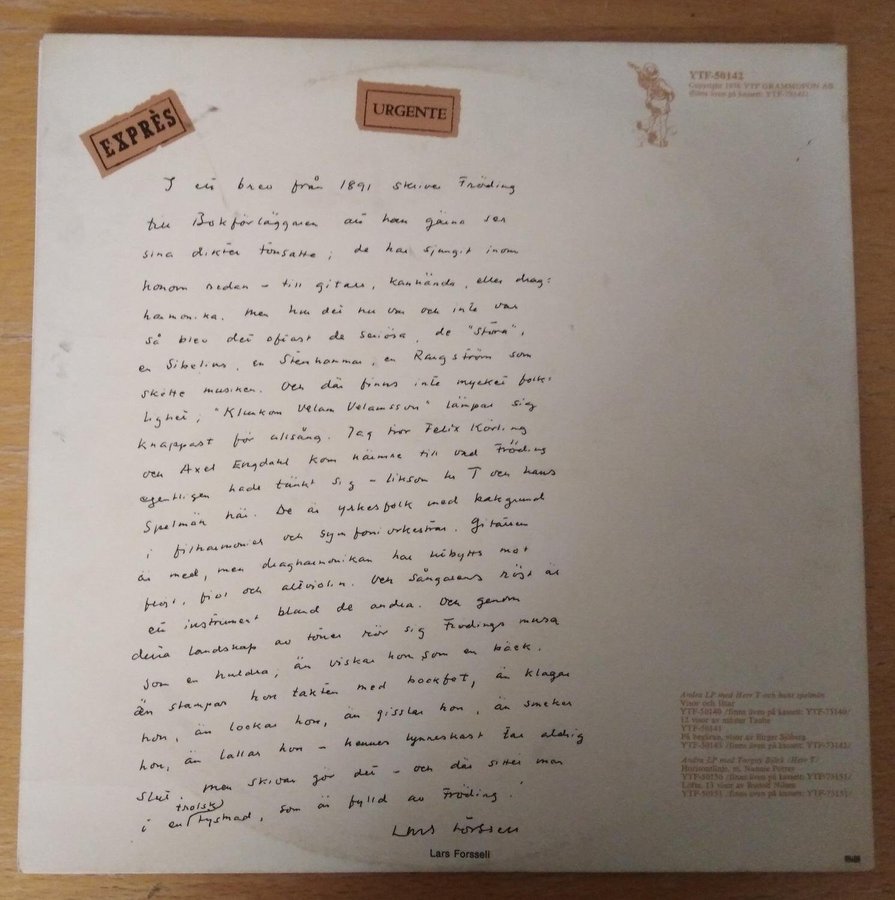 EXPRÈS
URGENTE
YTF-50142
Copyright 1978 YTF GRAMMOFON AB
(finns även på kassett: YTF-75142)
I ett brev från 1891 skriver Fröding
till Bokförläggaren att han gärna ser
sina dikter tonsatta; de har sjungit inom
honom redan – till gitarr, kanhända, eller drag-
harmonika. Men hur det nu var och inte var
så blev det oftast de seriösa, de "stora",
en Sibelius, en Stenhammar, en Rangström som
skötte musiken. Och där finns inte mycket folk-
lighet; "Klunkom Velam Velamsson" lämpar sig
knappast för allsång. Jag tror Felix Körling
och Axel Engdahl kom närmre till vad Fröding
egentligen hade tänkt sig – liksom hr T och hans
Spelmän här. De är yrkesfolk med bakgrund
i filharmonier och symfoniorkestrar. Gitarren
är med, men dragharmonikan har utbytts mot
flöjt, fiol och altviolin. Och sångarens röst är
ett instrument bland de andra. Och genom
detta landskap av toner rör sig Frödings musa
som en huldra; än viskar hon som en bäck,
än stampar hon takten med bockfot, än klagar
hon, än lockar hon, än gisslar hon, än smeker
hon, än lallar hon – hennes lynneskast tar aldrig
slut. Men skivan gör det – och där sitter man
i en trolsk tystnad, som är fylld av Fröding!
Lars Forssell
Lars Forssell
Andra LP med Herr T och hans spelmän
Visor och låtar
YTF-50140 /finns även på kassett: YTF-75140/
12 visor av mäster Taube
YTF-50141
På begäran, visor av Birger Sjöberg
YTF-50145 /finns även på kassett: YTF-75142/
Andra LP med Torgny Björk (Herr T)
Horisontlinje, m. Nannie Porres
YTF-50150 /finns även på kassett: YTF-75151/
Löfte, 13 visor av Ruster Nilsen
YTF-50151 /finns även på kassett: YTF-75151/